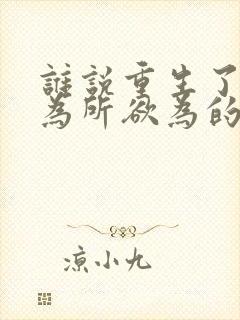 誰説重生了
為所欲為的
凉小九